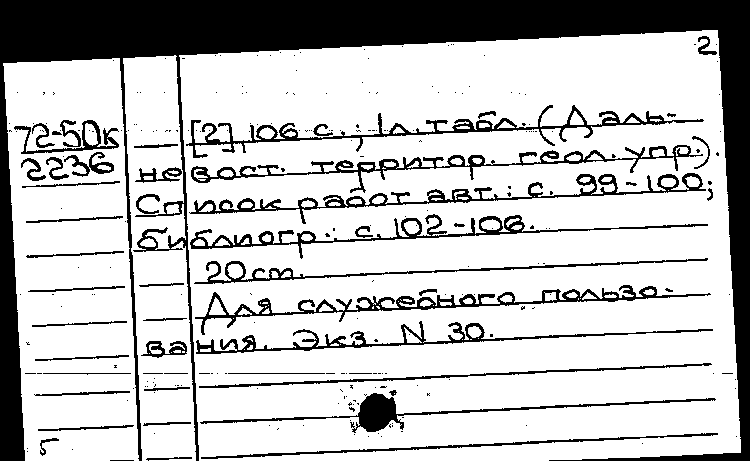 2
72-50к [2], 106 с.; 1 л. табл. (Даль-
2236 невост. территор. геол. упр.).
Список работ авт.: с. 99-100;
библиогр.: с. 102-106.
20 cm.
Для служебного пользо-
вания. Экз. N 30.
5